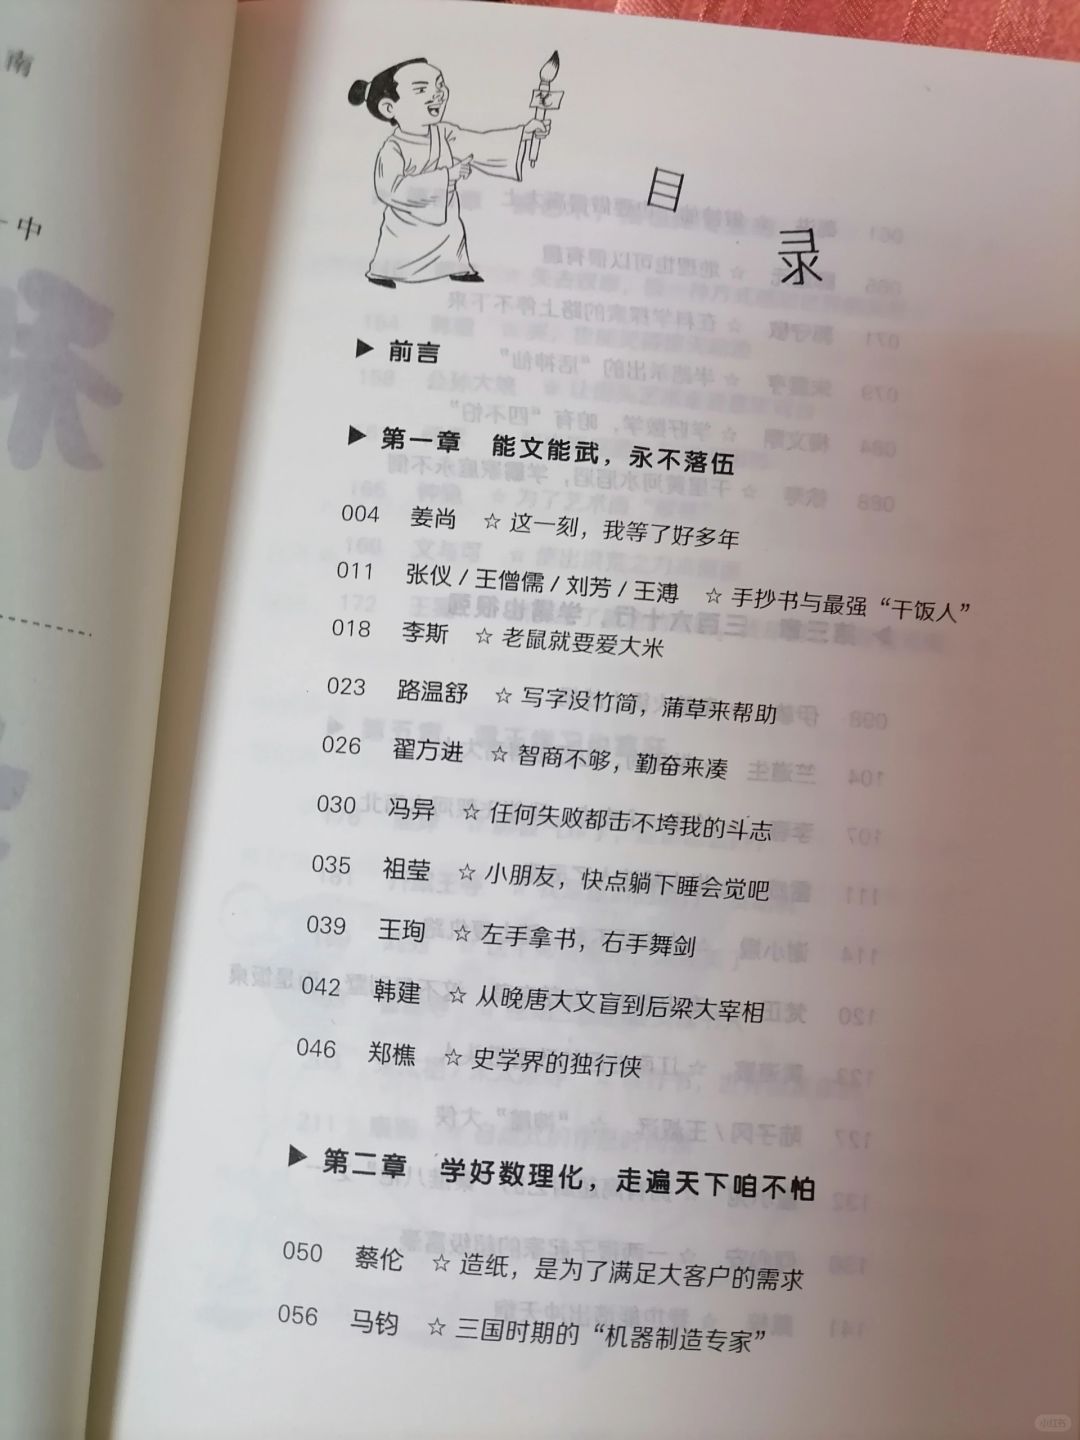 南
中
目
录
▶ 前言
▶ 第一章 能文能武，永不落伍
004 姜尚 ☆ 这一刻，我等了好多年
011 张仪 / 王僧儒 / 刘芳 / 王溥 ☆ 手抄书与最强“干饭人”
018 李斯 ☆ 老鼠就要爱大米
023 路温舒 ☆ 写字没竹简，蒲草来帮助
026 翟方进 ☆ 智商不够，勤奋来凑
030 冯异 ☆ 任何失败都击不垮我的斗志
035 祖莹 ☆ 小朋友，快点躺下睡会觉吧
039 王珣 ☆ 左手拿书，右手舞剑
042 韩建 ☆ 从晚唐大文盲到后梁大宰相
046 郑樵 ☆ 史学界的独行侠
▶ 第二章 学好数理化，走遍天下咱不怕
050 蔡伦 ☆ 造纸，是为了满足大客户的需求
056 马钧 ☆ 三国时期的“机器制造专家”
小红书